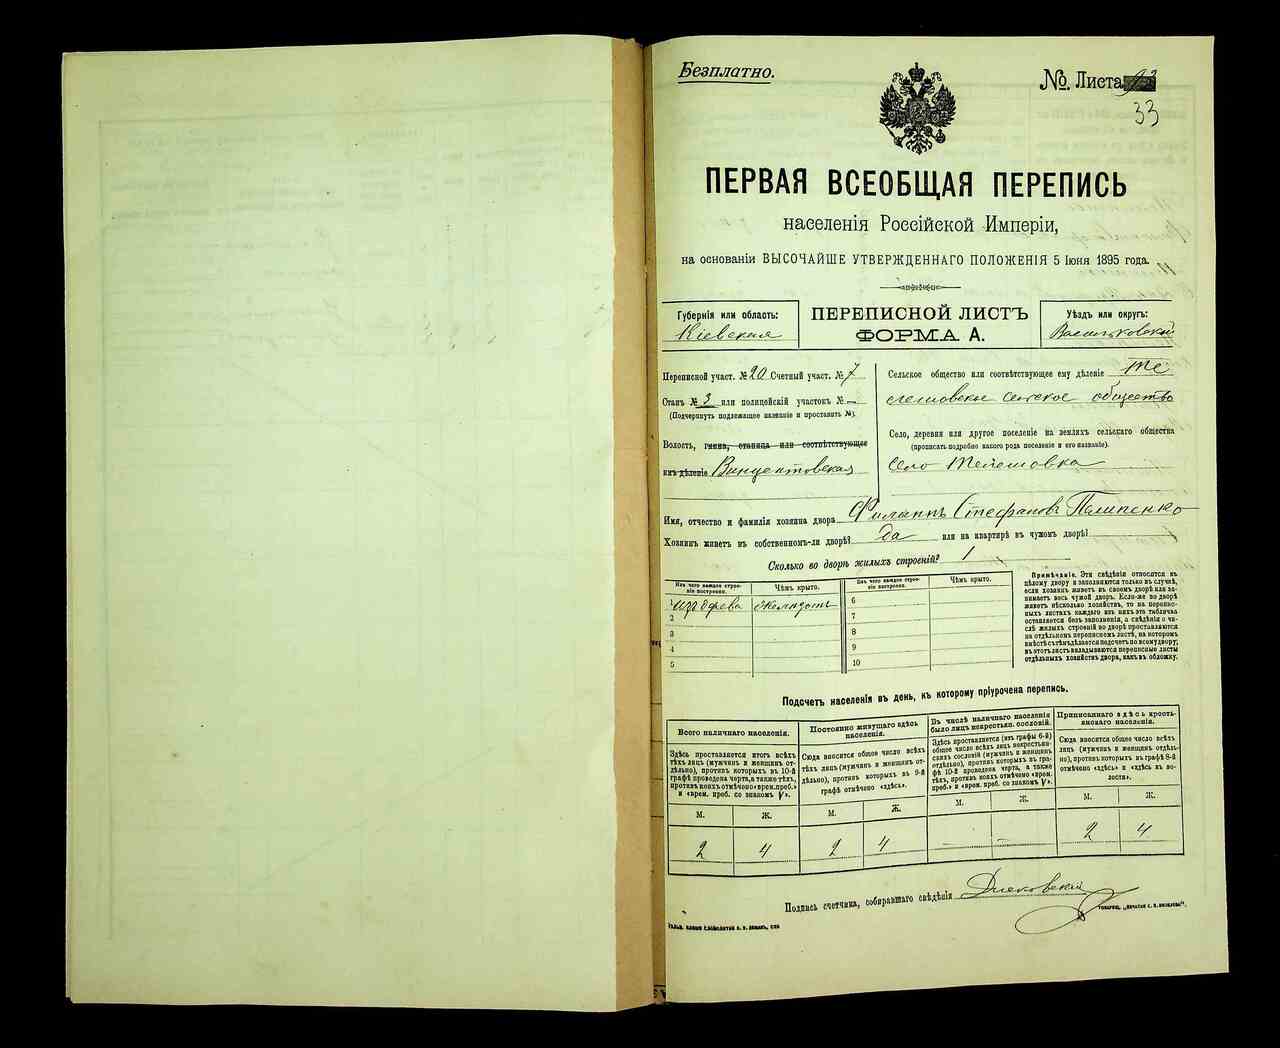 Безплатно.
№. Листа
33
ПЕРВАЯ ВСЕОБЩАЯ ПЕРЕПИСЬ
населенія Россійской Имперіи,
на основаніи ВЫСОЧАЙШЕ УТВЕРЖДЕННАГО ПОЛОЖЕНІЯ 5 Іюня 1895 года.
Губернія или область:
Кіевская
ПЕРЕПИСНОЙ ЛИСТЪ
ФОРМА А.
Уѣздъ или округъ:
Васильковскій
Переписной участ. № 20 Счетный участ. № 7
Станъ № 3 или полицейскій участокъ № —
(Подчеркнуть подлежащее названіе и проставить №).
Волость, гмина, станица или соотвѣтствующее
имъ дѣленіе Винцентовская
Сельское общество или соотвѣтствующее ему дѣленіе Те
лешовское сельское общество
Село, деревня или другое поселеніе на земляхъ сельскаго общества
(прописать подробно какого рода поселеніе и его названіе).
село Телешовка
Имя, отчество и фамилія хозяина двора Филиппъ Стефановъ Пилипенко
Хозяинъ живетъ въ собственномъ-ли дворѣ? да или на квартирѣ въ чужомъ дворѣ?
Сколько во дворѣ жилыхъ строеній? 1
Изъ чего каждое строе-
ніе построено.
Чѣмъ крыто.
Изъ чего каждое строе-
ніе построено.
Чѣмъ крыто.
изъ древа
6
2
7
3
8
4
9
5
10
Примѣчаніе. Эти свѣдѣнія относятся къ
цѣлому двору и заполняются только въ случаѣ,
если хозяинъ живетъ въ своемъ дворѣ или за-
нимаетъ весь чужой дворъ. Если-же во дворѣ
живетъ нѣсколько хозяйствъ, то на перепис-
ныхъ листахъ каждаго изъ нихъ эта табличка
оставляется безъ заполненія, а свѣдѣнія о чи-
слѣ жилыхъ строеній во дворѣ проставляются
на отдѣльномъ переписномъ листѣ, на которомъ
вмѣстѣ съ тѣмъ дѣлается подсчетъ по всему двору;
въ этотъ листъ вкладываются переписные листы
отдѣльныхъ хозяйствъ двора, какъ въ обложку.
Подсчетъ населенія въ день, къ которому пріурочена перепись.
Всего наличнаго населенія.
Постоянно живущаго здѣсь
населенія.
Въ числѣ наличнаго населенія
было лицъ некрестьян. сословій.
Приписаннаго здѣсь кресть-
янскаго населенія.
Здѣсь проставляется итогъ всѣхъ
тѣхъ лицъ (мужчинъ и женщинъ от-
дѣльно), противъ которыхъ въ 10-й
графѣ проведена черта, а также тѣхъ,
противъ коихъ отмѣчено «врем. преб.»
и «врем. преб. со знакомъ V».
Сюда вносится общее число всѣхъ
тѣхъ лицъ (мужчинъ и женщинъ от-
дѣльно), противъ которыхъ въ 9-й
графѣ отмѣчено «здѣсь».
Здѣсь проставляется (изъ графы 6-й)
общее число всѣхъ лицъ некрестьян-
скихъ сословій (мужчинъ и женщинъ
отдѣльно), противъ которыхъ въ гра-
фѣ 10-й проведена черта, а также
тѣхъ, противъ коихъ отмѣчено «врем.
преб.» и «врем. преб. со знакомъ V».
Сюда вносится общее число всѣхъ
лицъ (мужчинъ и женщинъ отдѣль-
но), противъ которыхъ въ графѣ 8-й
отмѣчено «здѣсь» и «здѣсь въ во-
лости».
М. Ж. М. Ж. М. Ж. М. Ж.
2 4 2 4 — — 2 4
Подпись счетчика, собиравшаго свѣдѣнія